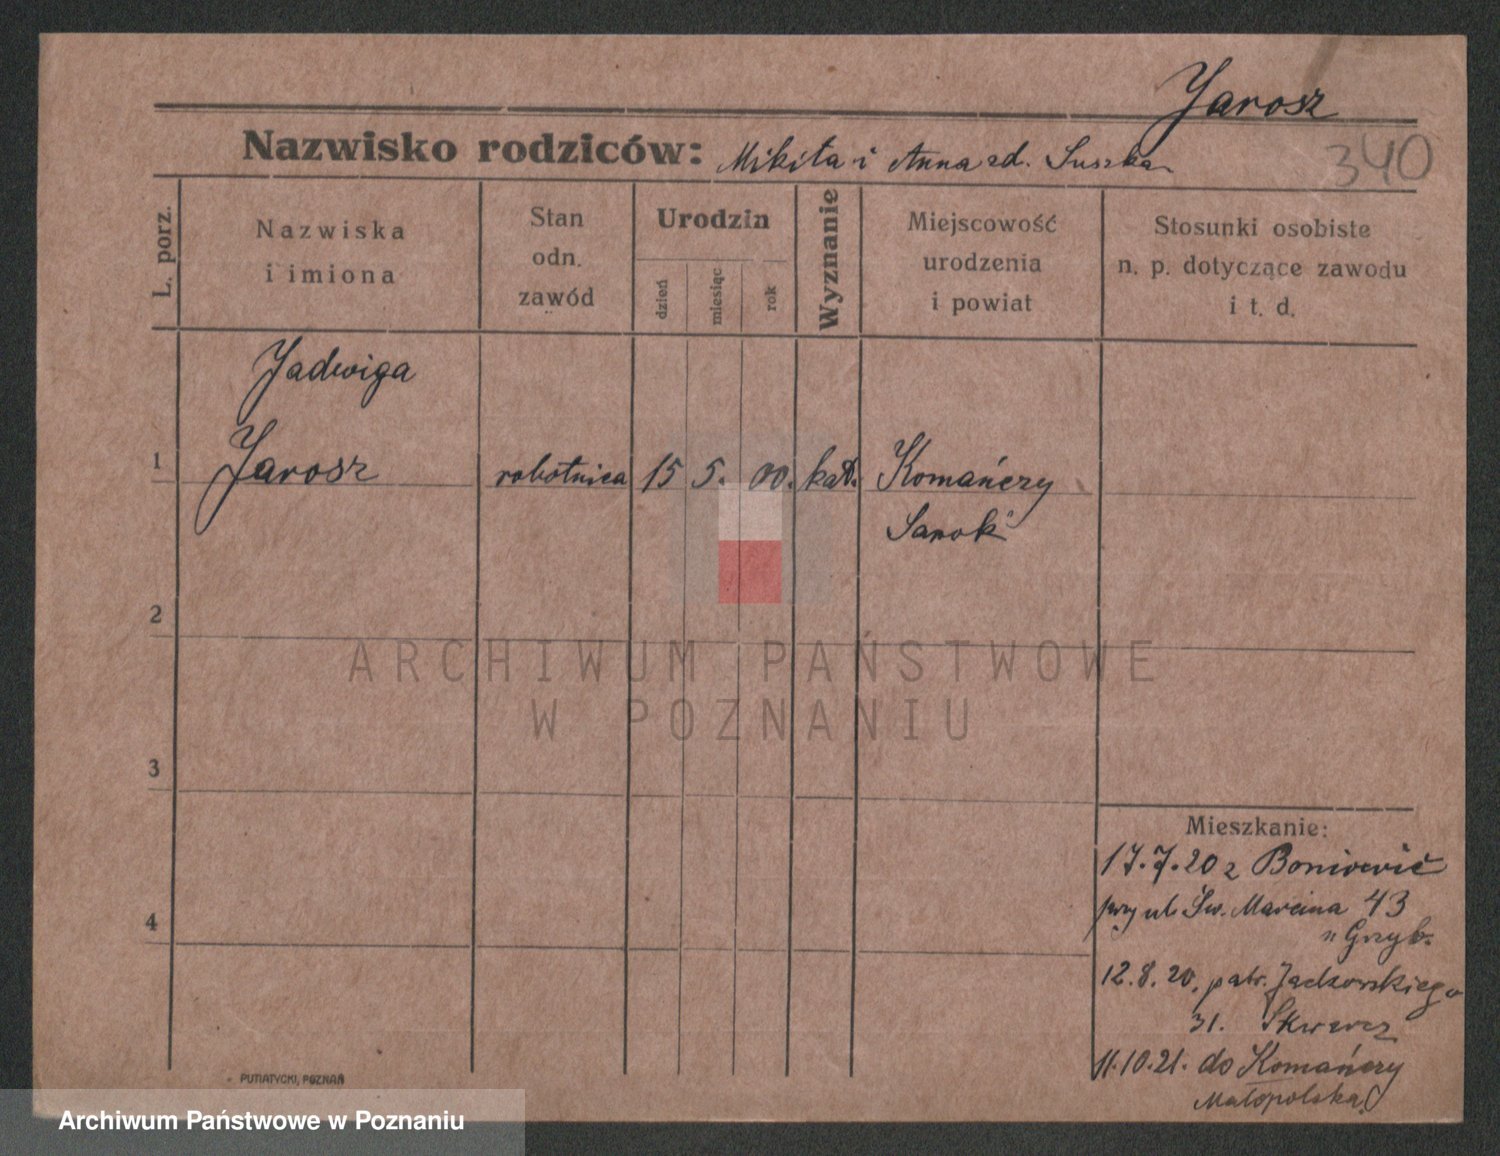 Jarosz
Nazwisko rodziców: Mikita i Anna zd. Suszka
340
L. porz.
Nazwiska
i imiona
Stan
odn.
zawód
Urodzin
dzień
miesiąc
rok
Wyznanie
Miejscowość
urodzenia
i powiat
Stosunki osobiste
n. p. dotyczące zawodu
i t. d.
Jadwiga
1 Jarosz robotnica 15 5. 00. kat. Komańczy
Sanok
2
ARCHIWUM PAŃSTWOWE
W POZNANIU
3
Mieszkanie:
17.7.20 z
przy ul. Św. Marcina 43
4
u Grzyb.
12.8.20. Jackowskiego
31.
11.10.21. do Komańczy
Małopolska
PUTIATYCKI, POZNAŃ
Archiwum Państwowe w Poznaniu